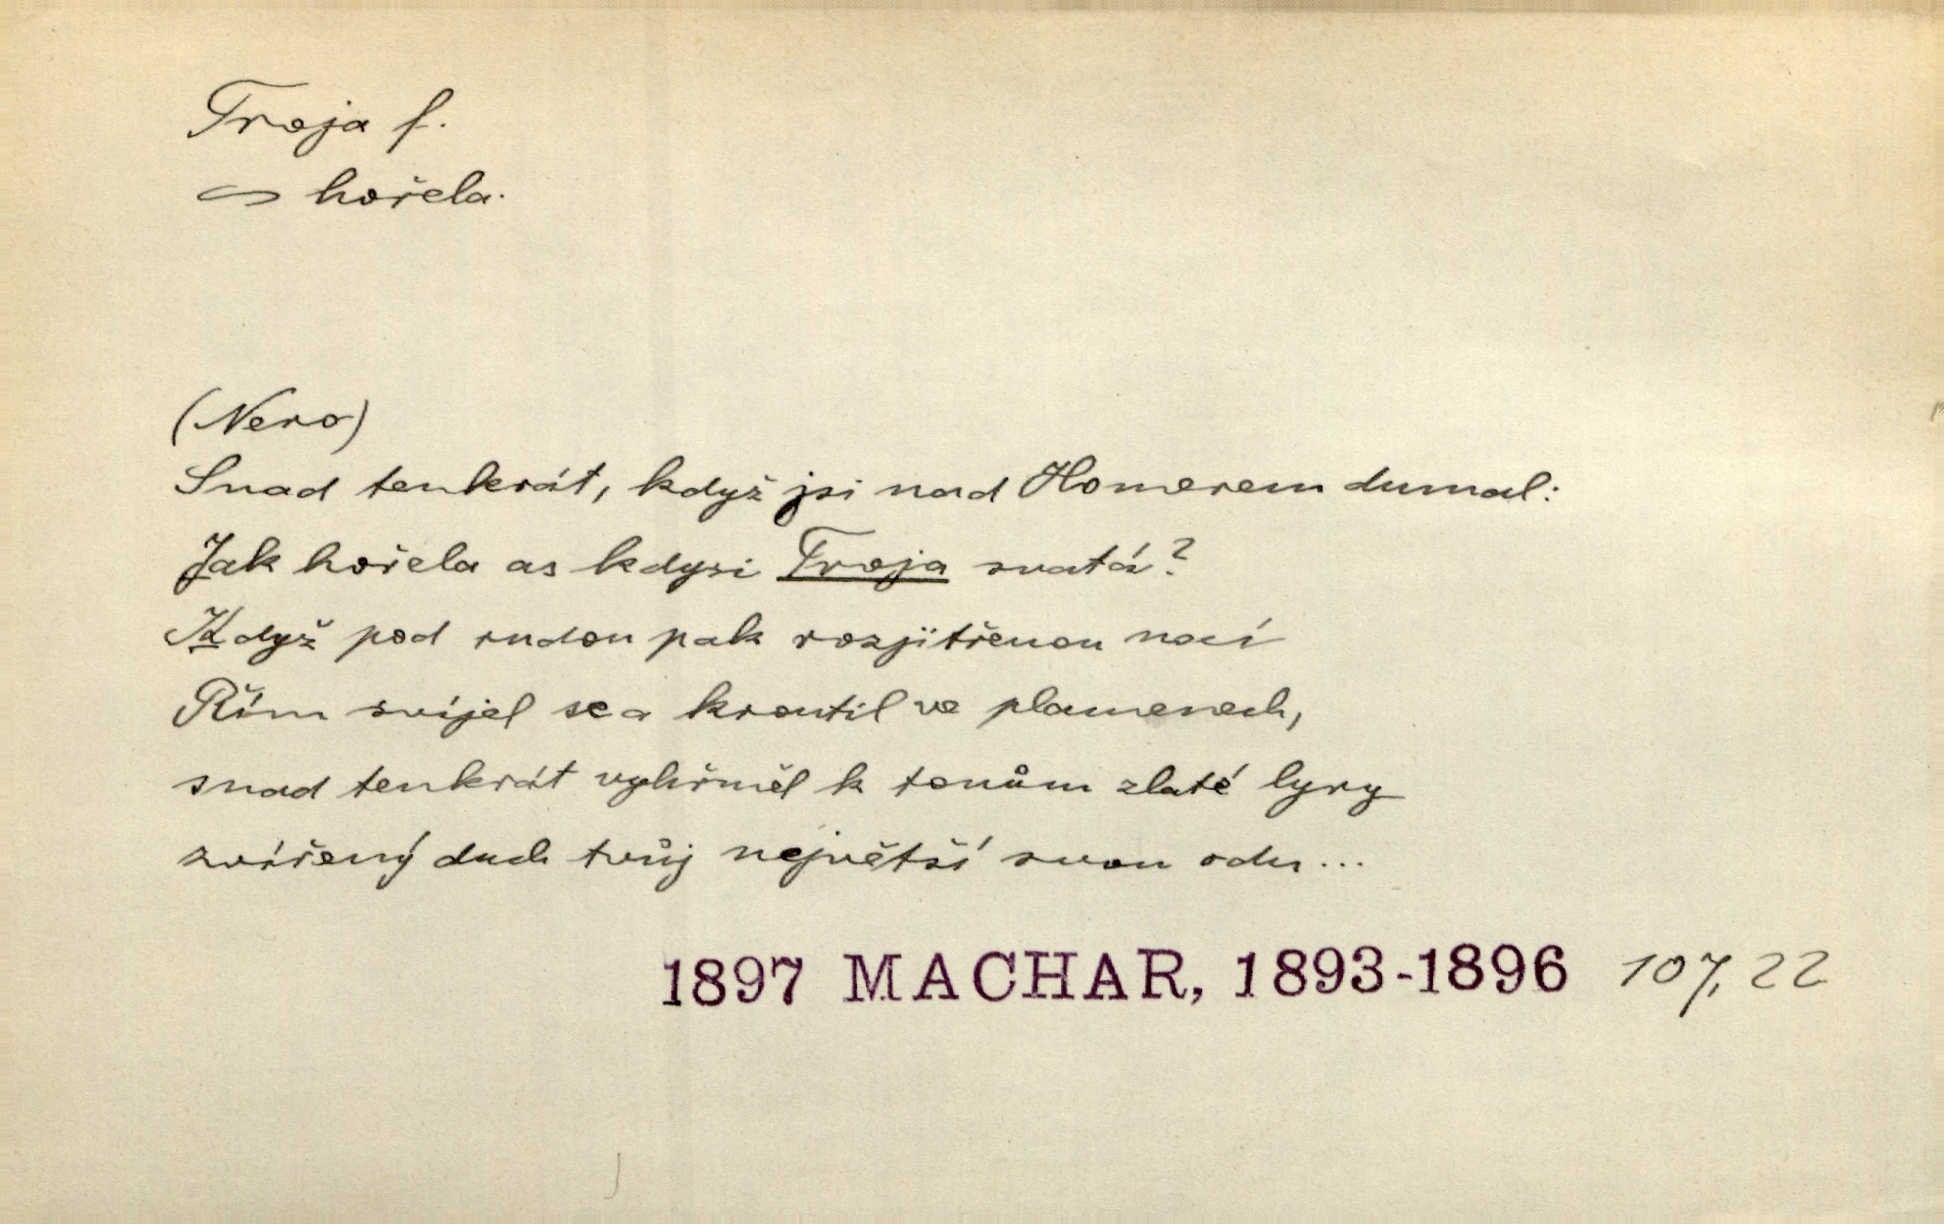 Troja f.
~ hořela.
(Nero)
Snad tenkrát, když jsi nad Homerem dumal:
Jak hořela as kdysi Troja svatá?
Když pod rudou pak rozjitřenou nocí
Řím svíjel se a kroutil ve plamenech,
snad tenkrát vyhřměl k tonům zlaté lyry
zvířený duch tvůj největší svou odu...
1897 MACHAR, 1893-1896 107, 22